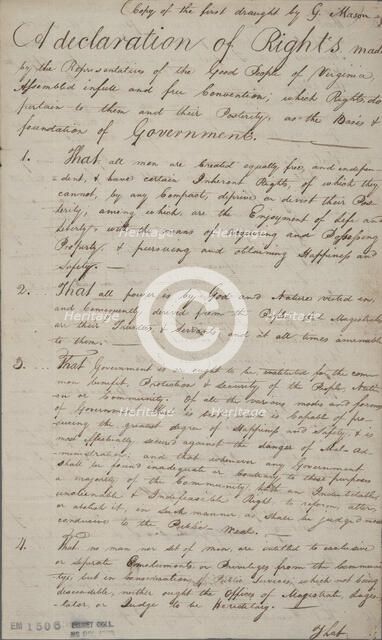 (Copy of the first draught by G. Mason
A declaration of Rights made
by the Representatives of the Good People of Virginia,
Assembled in full and free Convention; which Rights do
pertain to them and their Posterity, as the Basis &
foundation of Government.
1. That all men are Created equally free, and indepen-
dent, & have certain Inherent Rights, of which they
cannot, by any Compact, deprive or divest their Pos-
terity; among which are the Enjoyment of life and
liberty, with the means of Acquiring and Possessing
Property, & pursuing and obtaining Happiness and
Safety.
2. That all power is by God and Nature vested in,
and Consequently derived from the People; that Magistrates
are their Trustees & Servants, and at all times amenable
to them.
3. That Government is or ought to be instituted for the com-
mon benefit, Protection & security of the People, Nati-
on or Community. Of all the various modes and forms
of Government, that is best, which is Capable of pro-
ducing the greatest degree of Happiness and Safety, & is
most effectually secured against the danger of Mal-ad-
ministration: and that whenever any Government
shall be found inadequate or Contrary to these purposes
a majority of the Community hath an Indubitable,
unalienable & Indefeasible Right, to reform, alter,
or abolish it, in such manner as shall be judged most
conducive to the Public Weal.
4. That no man nor set of Men, are entitled to exclusive
or seperate Emoluments or Privileges from the Commu-
nity, but in Consideration of Public Services; which not being
descendable, neither ought the Offices of Magistrate, Legis-
lator, or Judge to be Hereditary.
That
EM 1506
EMMET COLL.
Heritage
Heritage
Heritage
Heritage
Heritage
Heritage